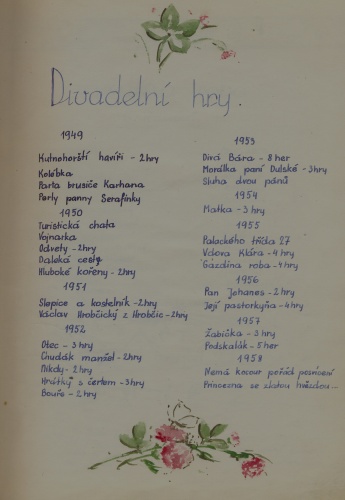 Divadelní hry.
1949
Kutnohorští havíři - 2hry
Kolébka
Parta brusiče Karhana
Perly panny Serafinky
1950
Turistická chata
Vojnarka
Odvety - 2hry
Daleká cesta
Hluboké kořeny - 2hry
1951
Slepice a kostelník - 2hry
Václav Hrobčický z Hrobčic - 2hry
1952
Otec - 3hry
Chudák manžel - 2hry
Nikdy - 2hry
Hrátky s čertem - 3hry
Bouře - 2hry
1953
Divá Bára - 8her
Morálka paní Dulské - 3hry
Sluha dvou pánů
1954
Matka - 3hry
1955
Palackého třída 27
Vdova Klára - 4hry
Gazdina roba - 4hry
1956
Pan Johanes - 2hry
Její pastorkyňa - 4hry
1957
Žabička - 3hry
Podskalák - 5her
1958
Nemá kocour pořád posvícení
Princezna se zlatou hvězdou...